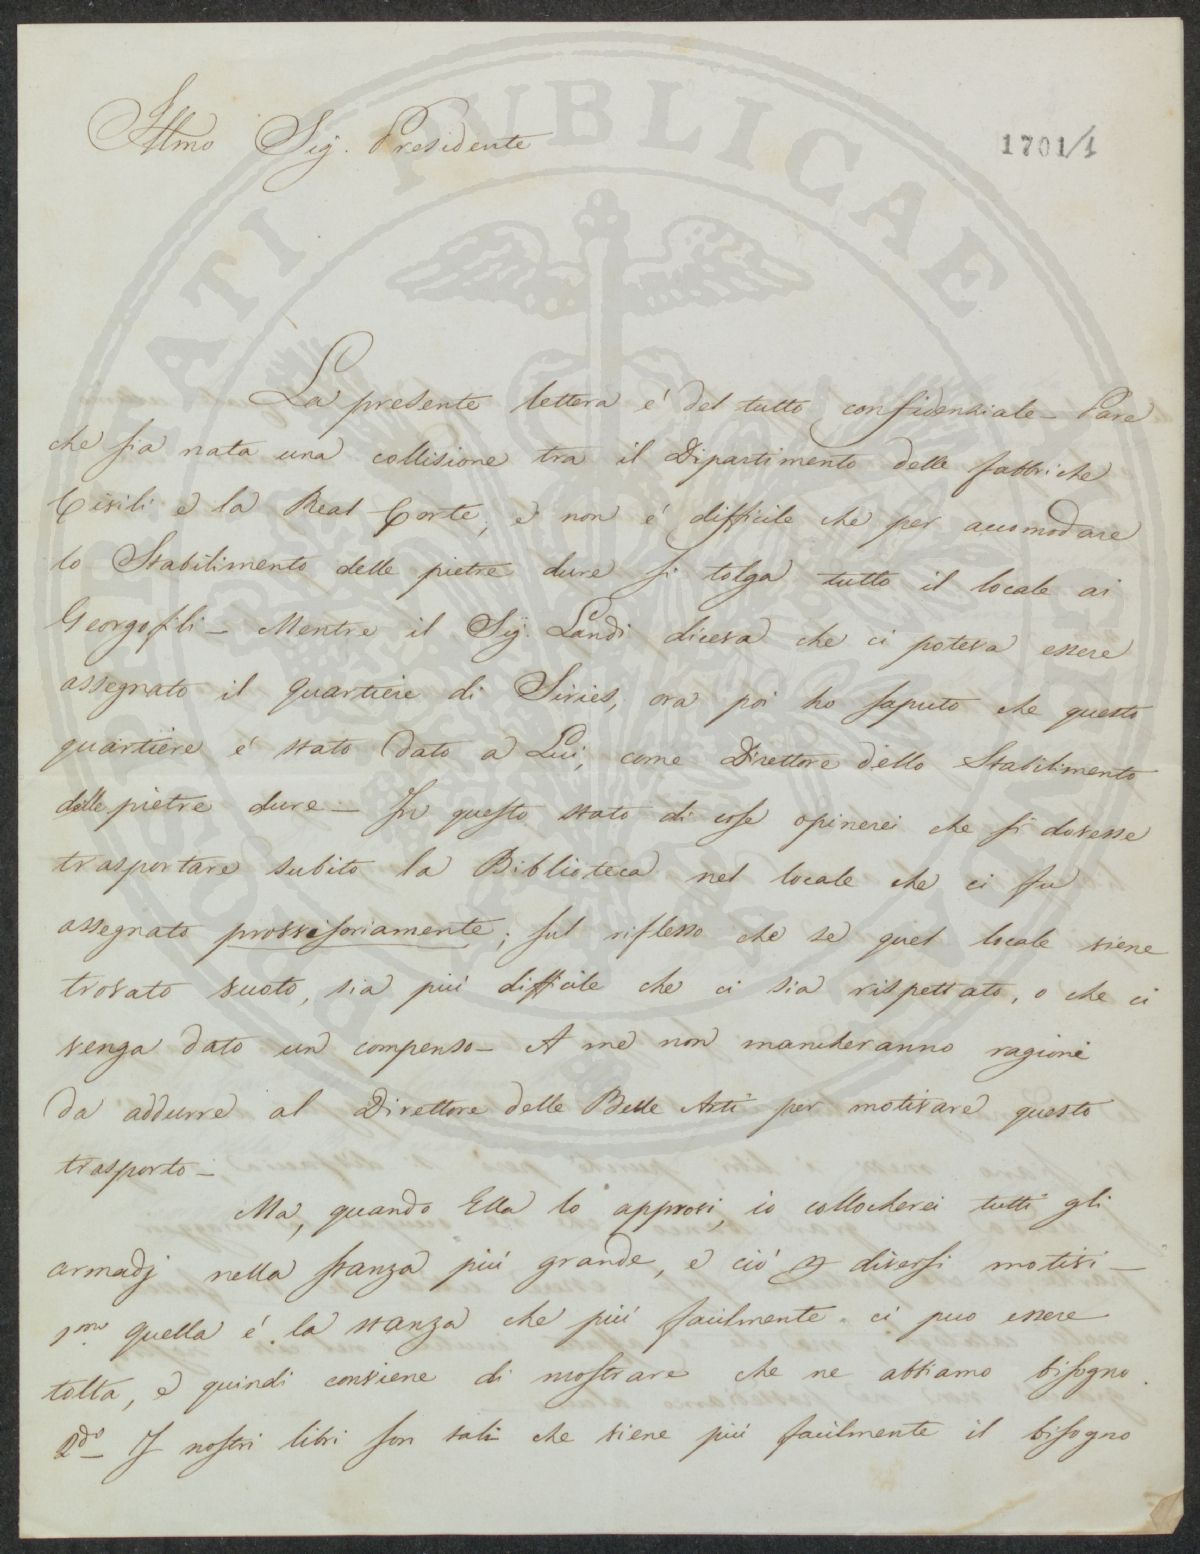 Illmo Sig. Presidente
1701/1
PROSPERITATI PUBLICAE AUGENDAE
La presente lettera é del tutto confidenziale – Pare
che sia nata una collisione tra il Dipartimento delle fabbriche
Civili e la Real Corte, e non é difficile che per accomodare
lo Stabilimento delle pietre dure si tolga tutto il locale ai
Georgofili – Mentre il Sig. Landi diceva che ci poteva essere
assegnato il quartiere di Siries, ora poi ho saputo che questo
quartiere é stato dato a Lui, come Direttore dello Stabilimento
delle pietre dure – In questo stato di cose opinerei che si dovesse
trasportare subito la Biblioteca nel locale che ci fu
assegnato provvisoriamente; sul riflesso che se quel locale viene
trovato vuoto, sia piú difficile che ci sia rispettato, o che ci
venga dato un compenso – A me non mancheranno ragioni
da addurre al Direttore delle Belle Arti per motivare questo
trasporto –
Ma, quando Ella lo approvi, io collocherei tutti gli
armadj nella stanza piú grande, e ció p diversi motivi –
1mo quella é la stanza che piú facilmente ci puo essere
tolta, e quindi conviene di mostrare che ne abbiamo bisogno.
2do – I nostri libri son tali che viene piú facilmente il bisogno